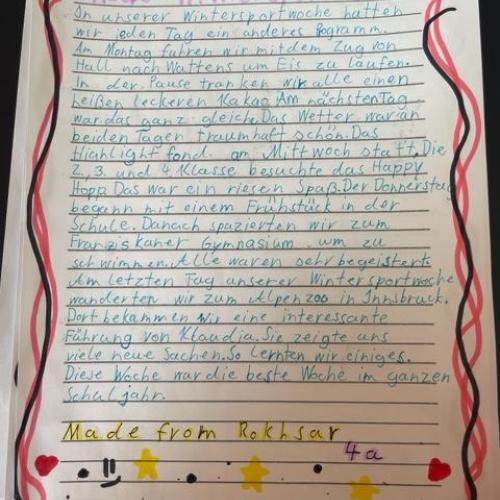 In unserer Wintersportwoche hatten
wir jeden Tag ein anderes Programm.
Am Montag fuhren wir mit dem Zug von
Hall nach Wattens um Eis zu laufen.
In der Pause tranken wir alle einen
heißen leckeren Kakao. Am nächsten Tag
war das ganz gleich. Das Wetter war an
beiden Tagen traumhaft schön. Das
Highlight fond am Mittwoch statt. Die
2., 3. und 4. Klasse besuchte das Happy
Hopp. Das war ein riesen Spaß. Der Donnerstag
begann mit einem Frühstück in der
Schule. Danach spazierten wir zum
Franziskaner Gymnasium um zu
schwimmen. Alle waren sehr begeistert.
Am letzten Tag unserer Wintersportwoche
wanderten wir zum Alpenzoo in Innsbruck.
Dort bekammen wir eine interessante
Führung von Klaudia. Sie zeigte uns
viele neue Sachen. So lernten wir einiges.
Diese Woche war die beste Woche im ganzen
Schuljahr.
Made from Rokhsar
4a